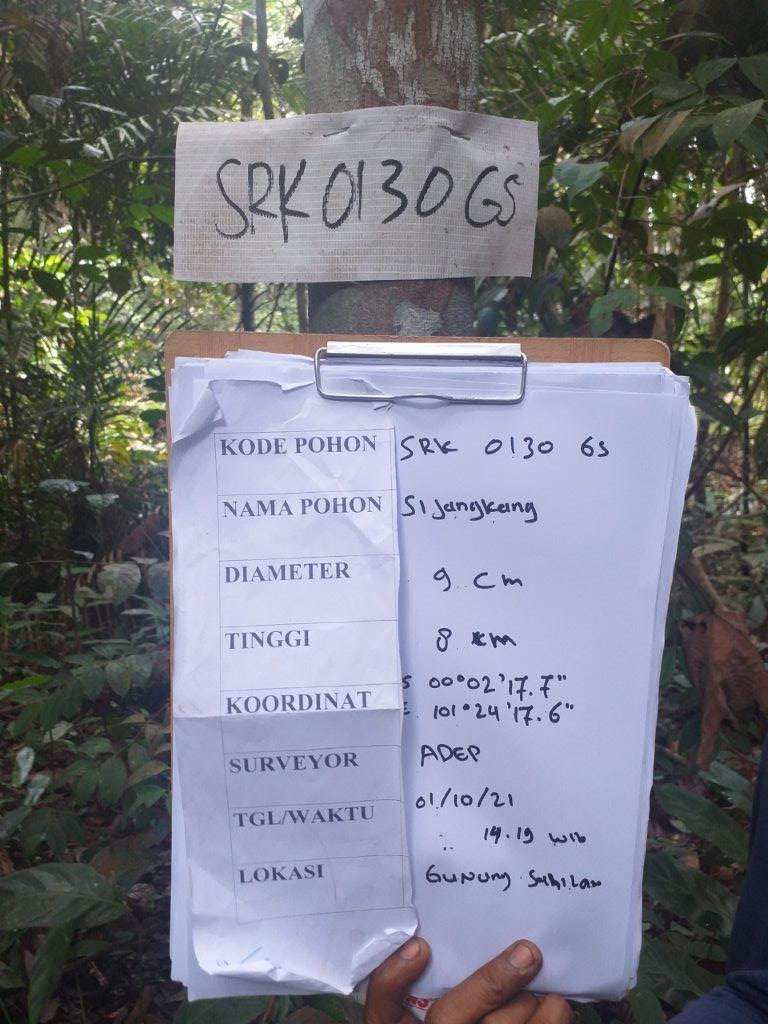 SRK 0130 GS
KODE POHON SRK 0130 GS
NAMA POHON Sijangkang
DIAMETER 9 cm
TINGGI 8 m
S 00°02'17.7"
KOORDINAT E 101°24'17.6"
SURVEYOR ADEP
TGL/WAKTU 01/10/21
14.19 wib
LOKASI Gunung Sahilan